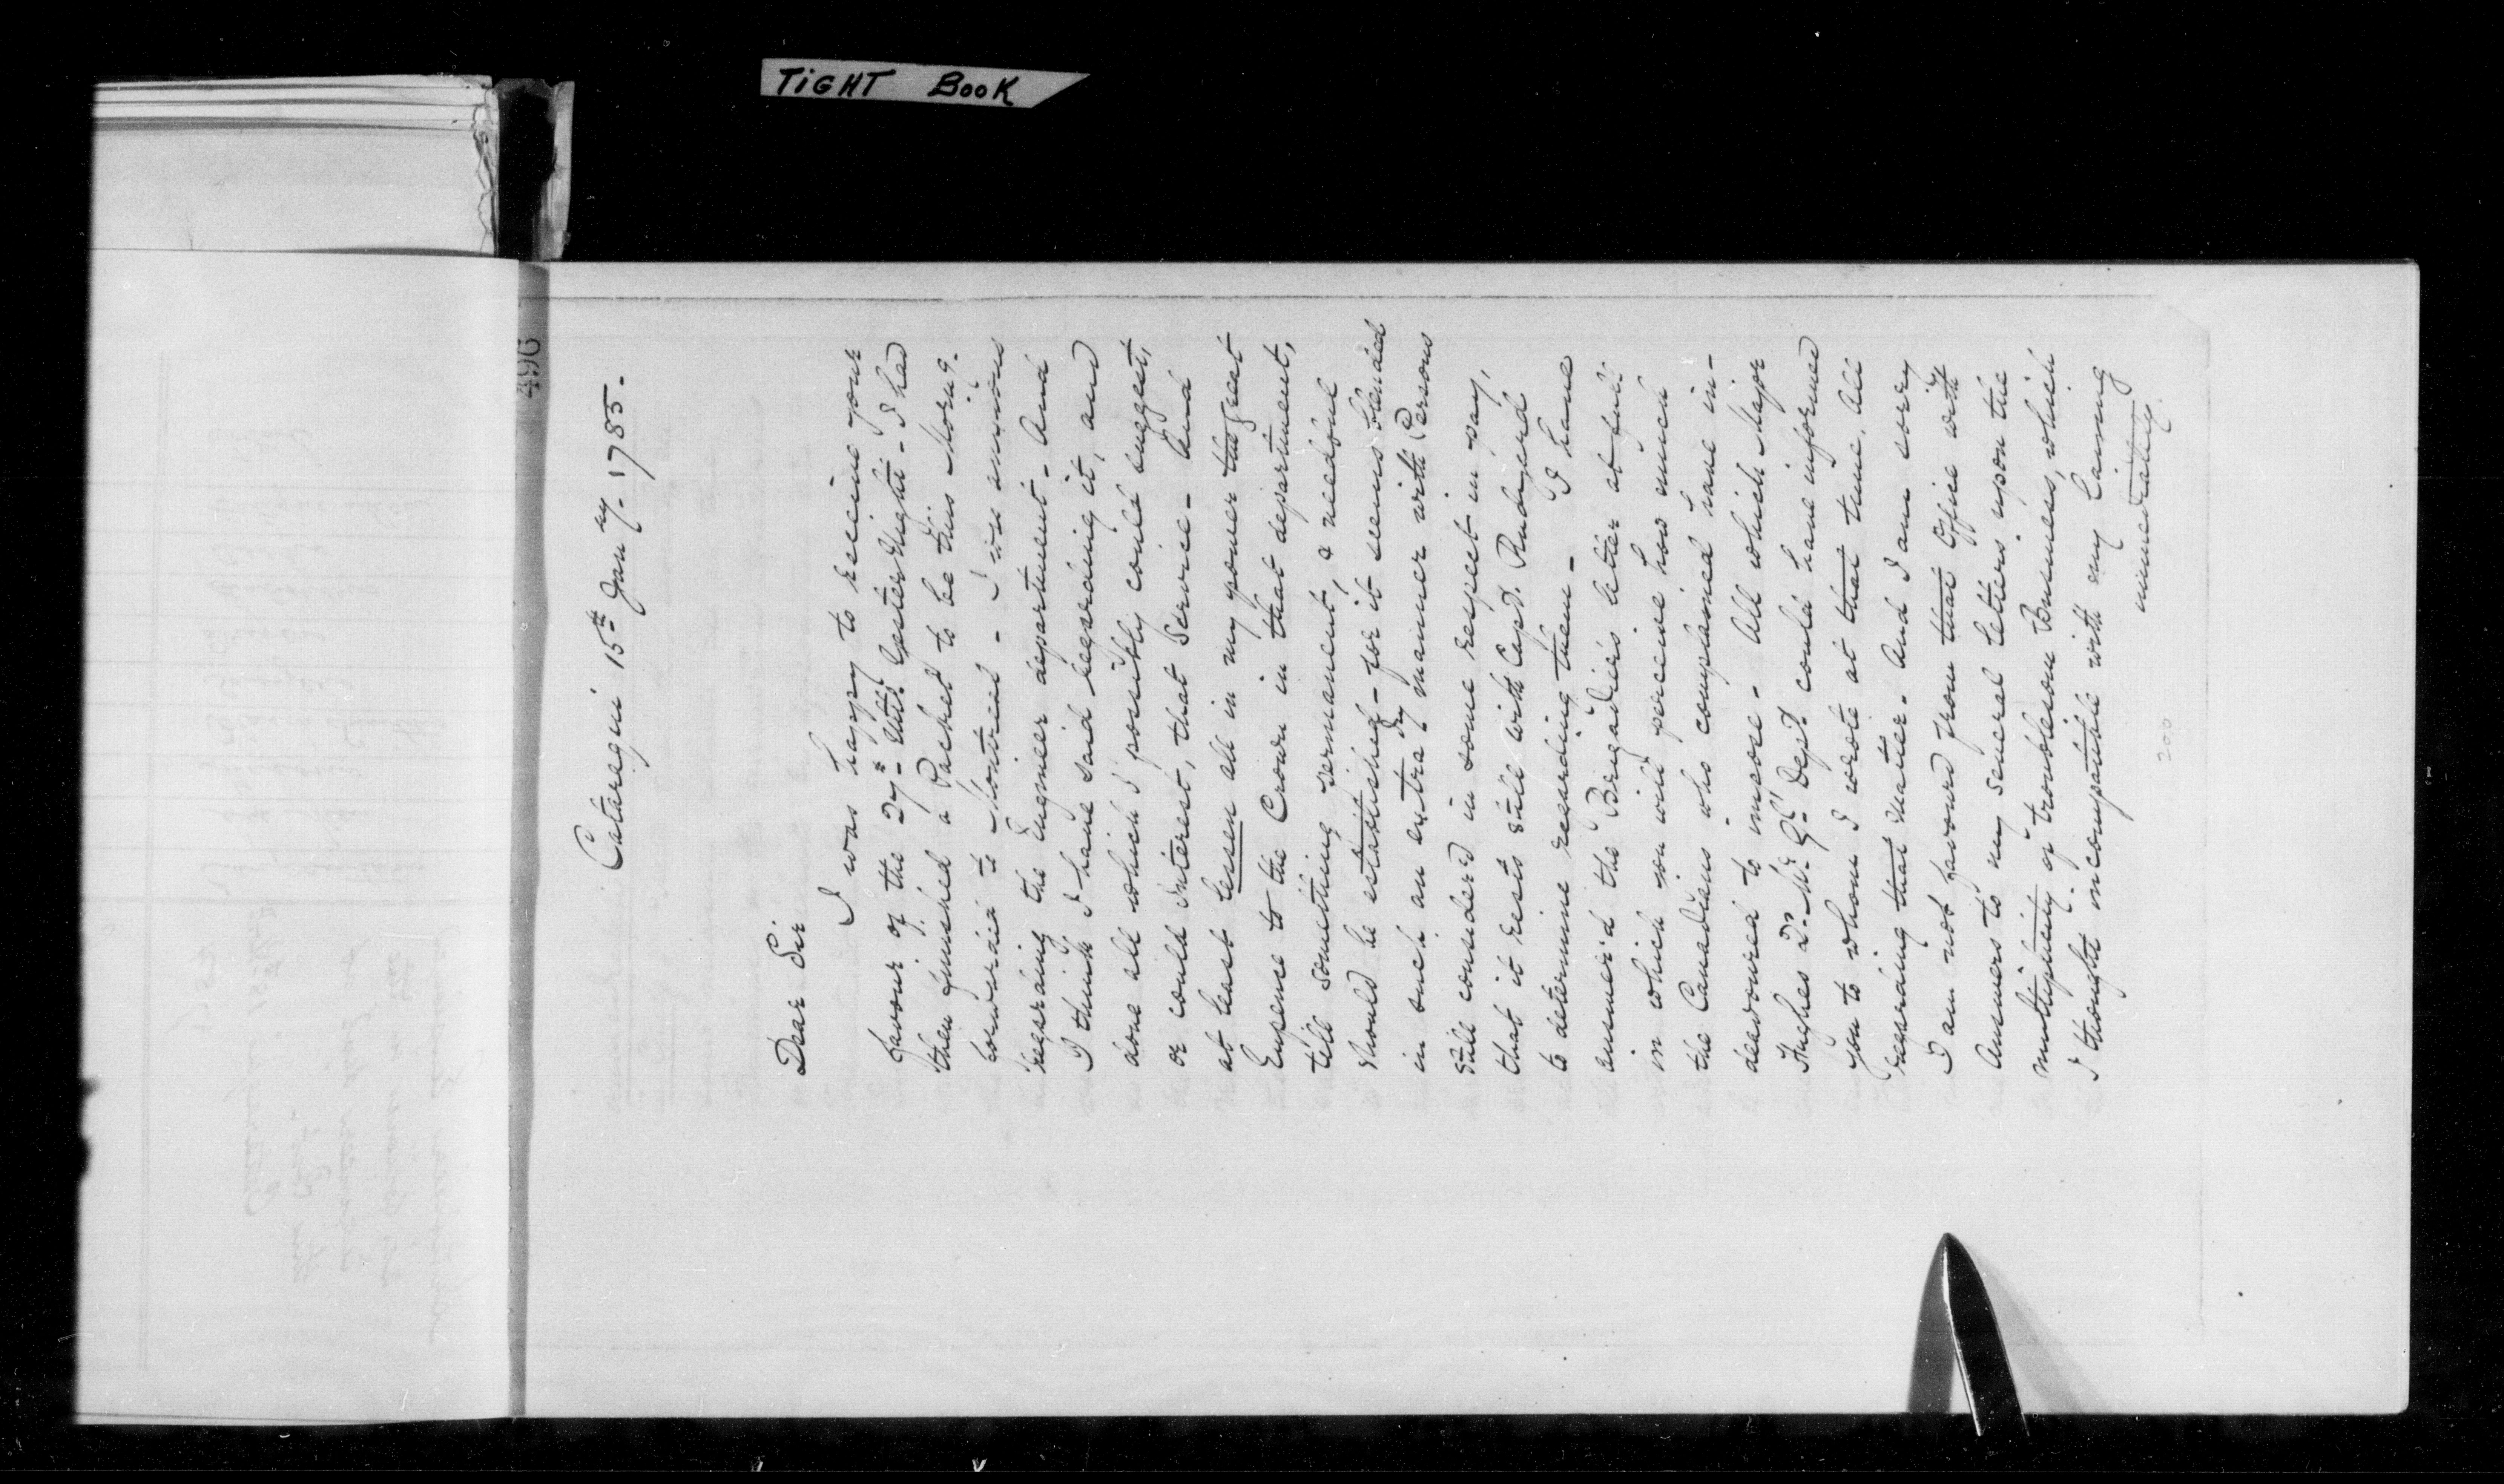 TIGHT BOOK
496
Cataraqui 15th Janry. 1785.
Dear Sir
I was happy to receive your
favour of the 27th Ulto. Yester Night - I had
then finished a Packet to be this Morng.
forwarded to Montreal - I was anxious
regarding the Engineer department - And
I think I have said regarding it, and
done all which I possibly could suggest,
or could interest, that Service - And
at least lessen all in my power the great
Expense to the Crown in that department,
till something permanent, & needful
should be established - for it seems blended
in such an extradry manner with Persons
still considered in some respect in pay,
that it rests still with Capt. Rudyerd
to determine regarding them - I have
answer'd the Brigadier's letter at full
in which you will perceive how much
the Canadians who complained have in-
deavoured to impose - All which Major
Hughes D. Mr. Qr. Dept. could have informed
you to whom I wrote at that time, All
regarding that Matter. And I am sorry
I am not favoured from that Office with
Answers to my several letters upon the
multiplicity of troublesom Business, which
I thought incompatible with my Causing
immediately
200